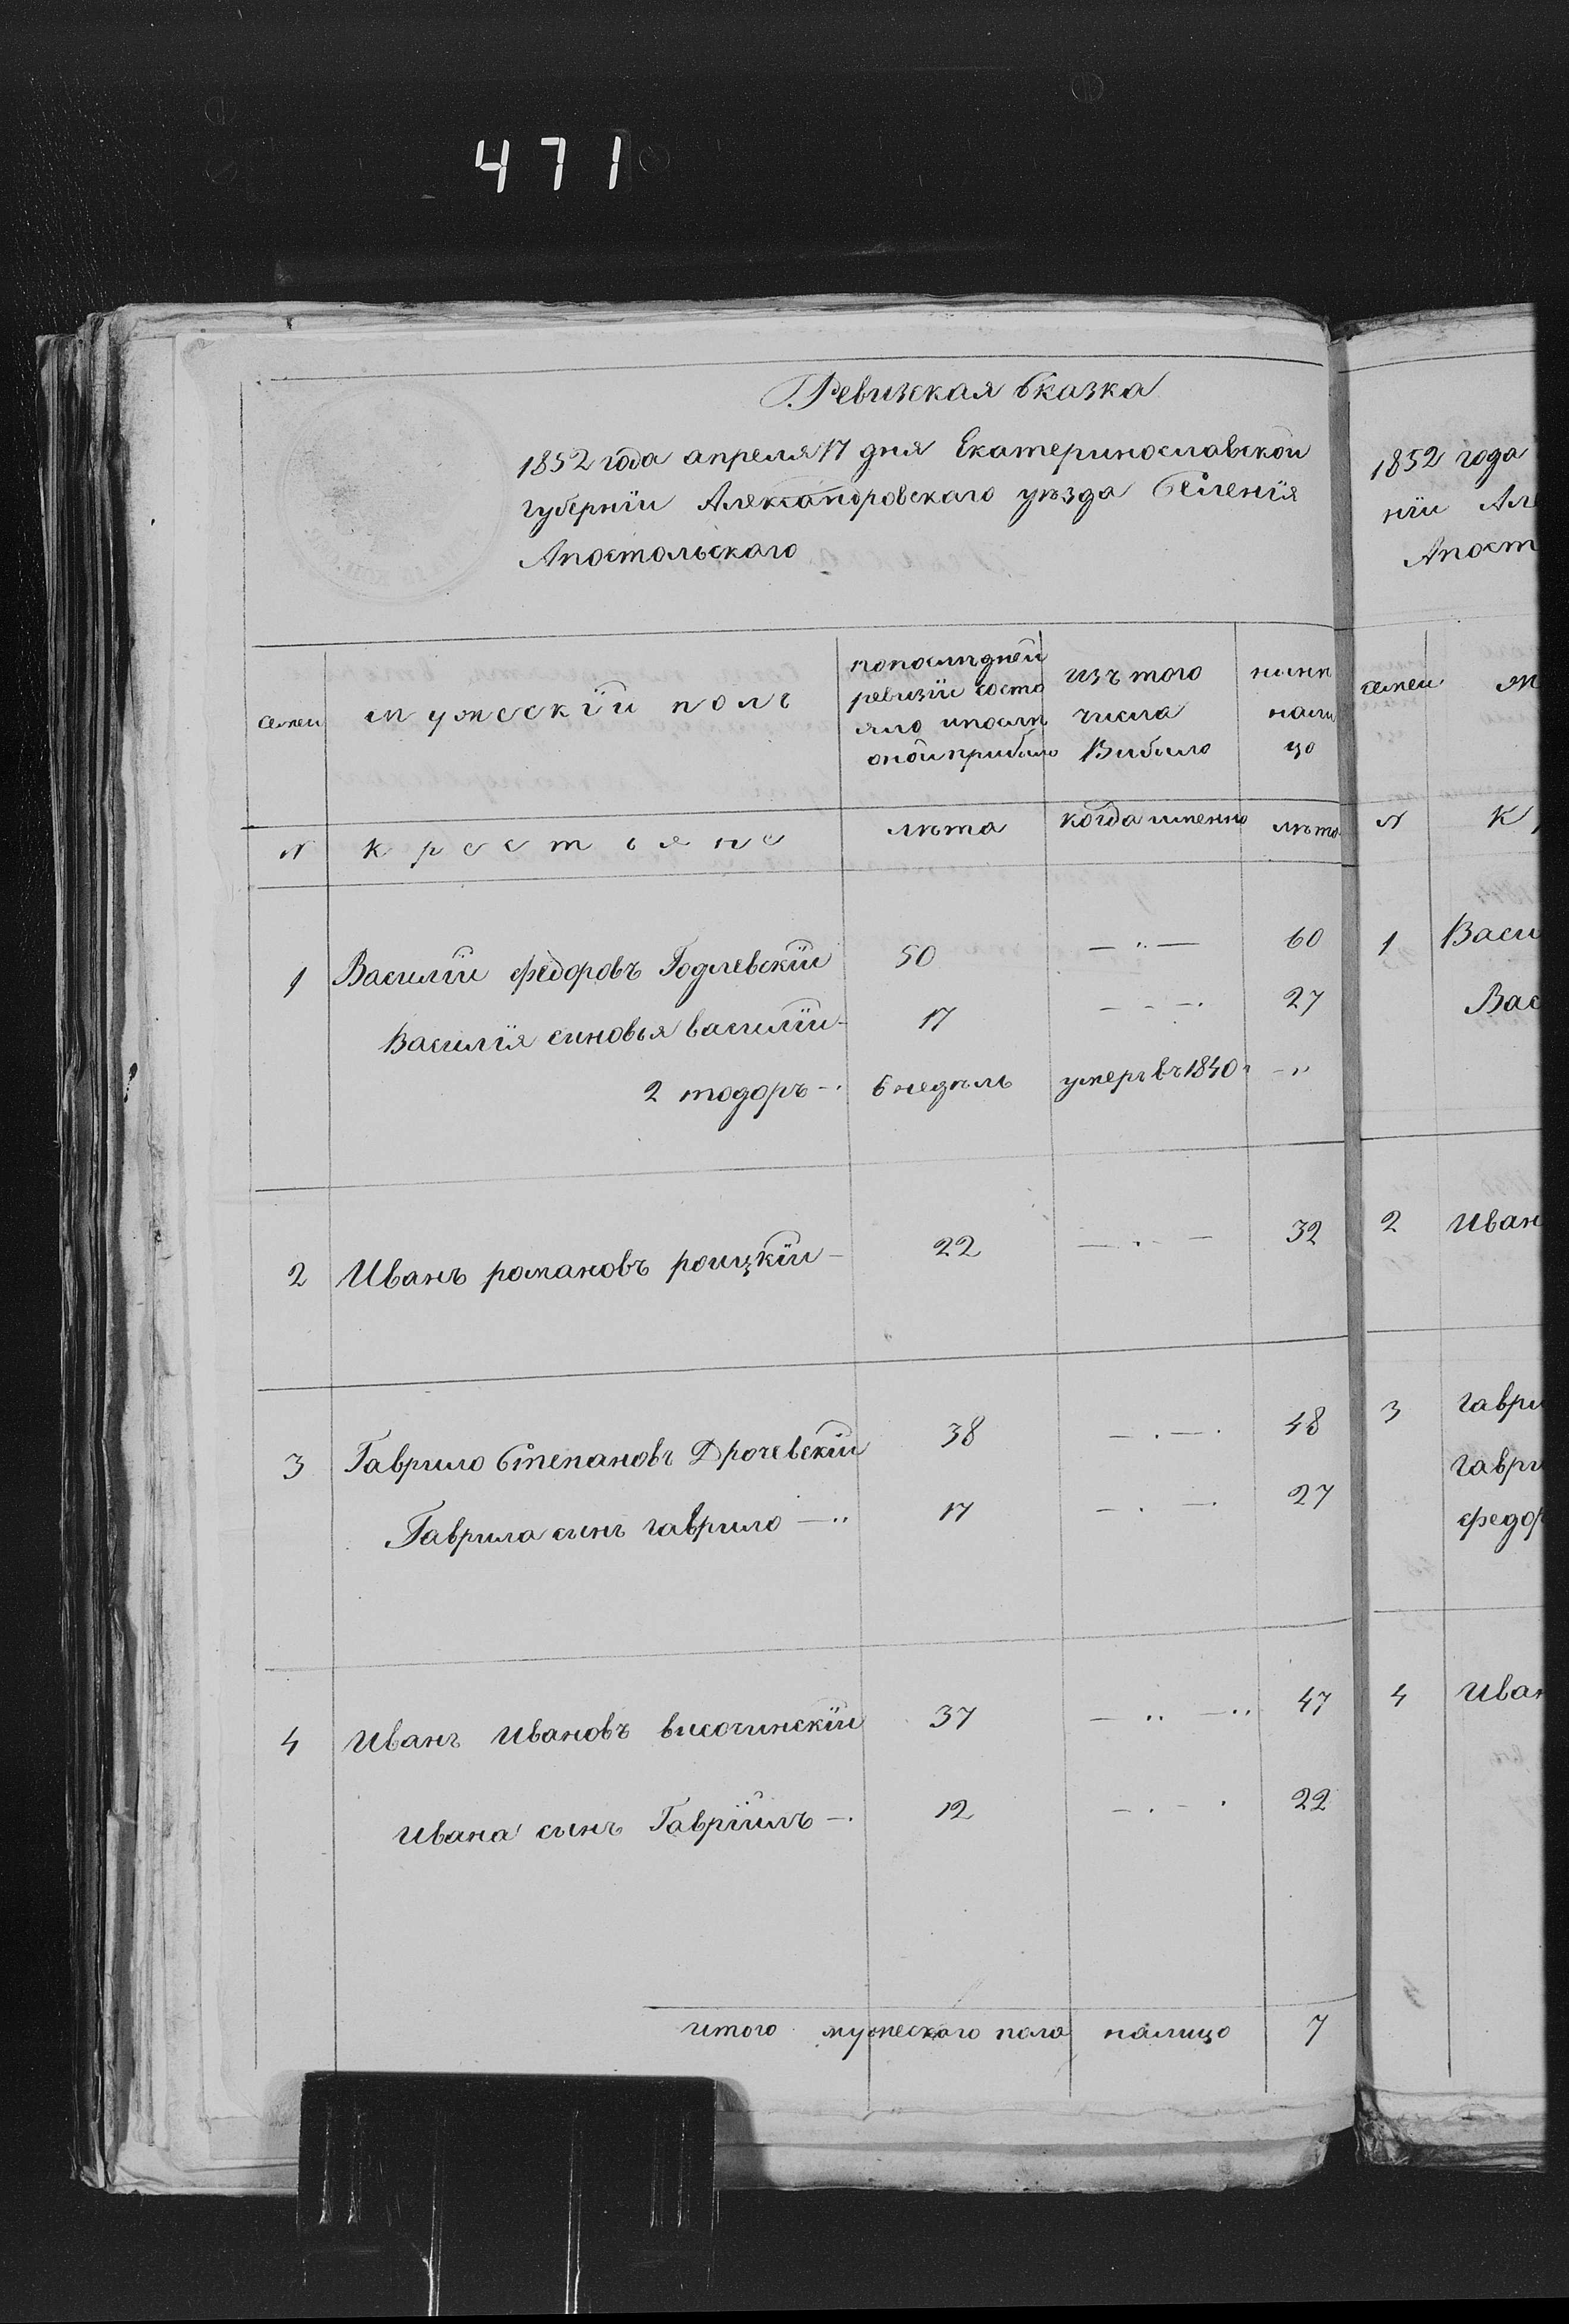 471
Ревизская Сказка
1852 года апреля 17 дня Екатеринославской
губернїи Александровскаго уѣзда Селенїя
Апостольскаго
семеи
мужескїй полъ
попослѣдней
ревизїи состо
яло ипослѣ
оной прибыло
изъ того
числа
Выбыло
нынѣ
нали
цо
N
крестьяне
лѣта
когда именно
лѣта
1 Василїй федоровъ Годлевскїй 50 — " — 60
Василїя сыновья василїй — 17 — - —. 27
2 тодоръ —. 6 недѣль умеръ въ 1840 г — "
2 Иванъ романовъ роицкїй — 22 — . — 32
3 Гаврило Степановъ Дрочевскїй 38 — . — . 48
Гаврила сынъ гаврило — .. 17 — . — . 27
4 Иванъ Ивановъ височинскїй 37 — .. — .. 47
Ивана сынъ Гаврїилъ —. 12 — . — . 22
итого мужескаго пола налицо 7
1852 года
нїи Але
Апост
семеи
м
N
К
1 Васи
Вас
2 Иван
3 гаври
гаври
федор
4 Иван